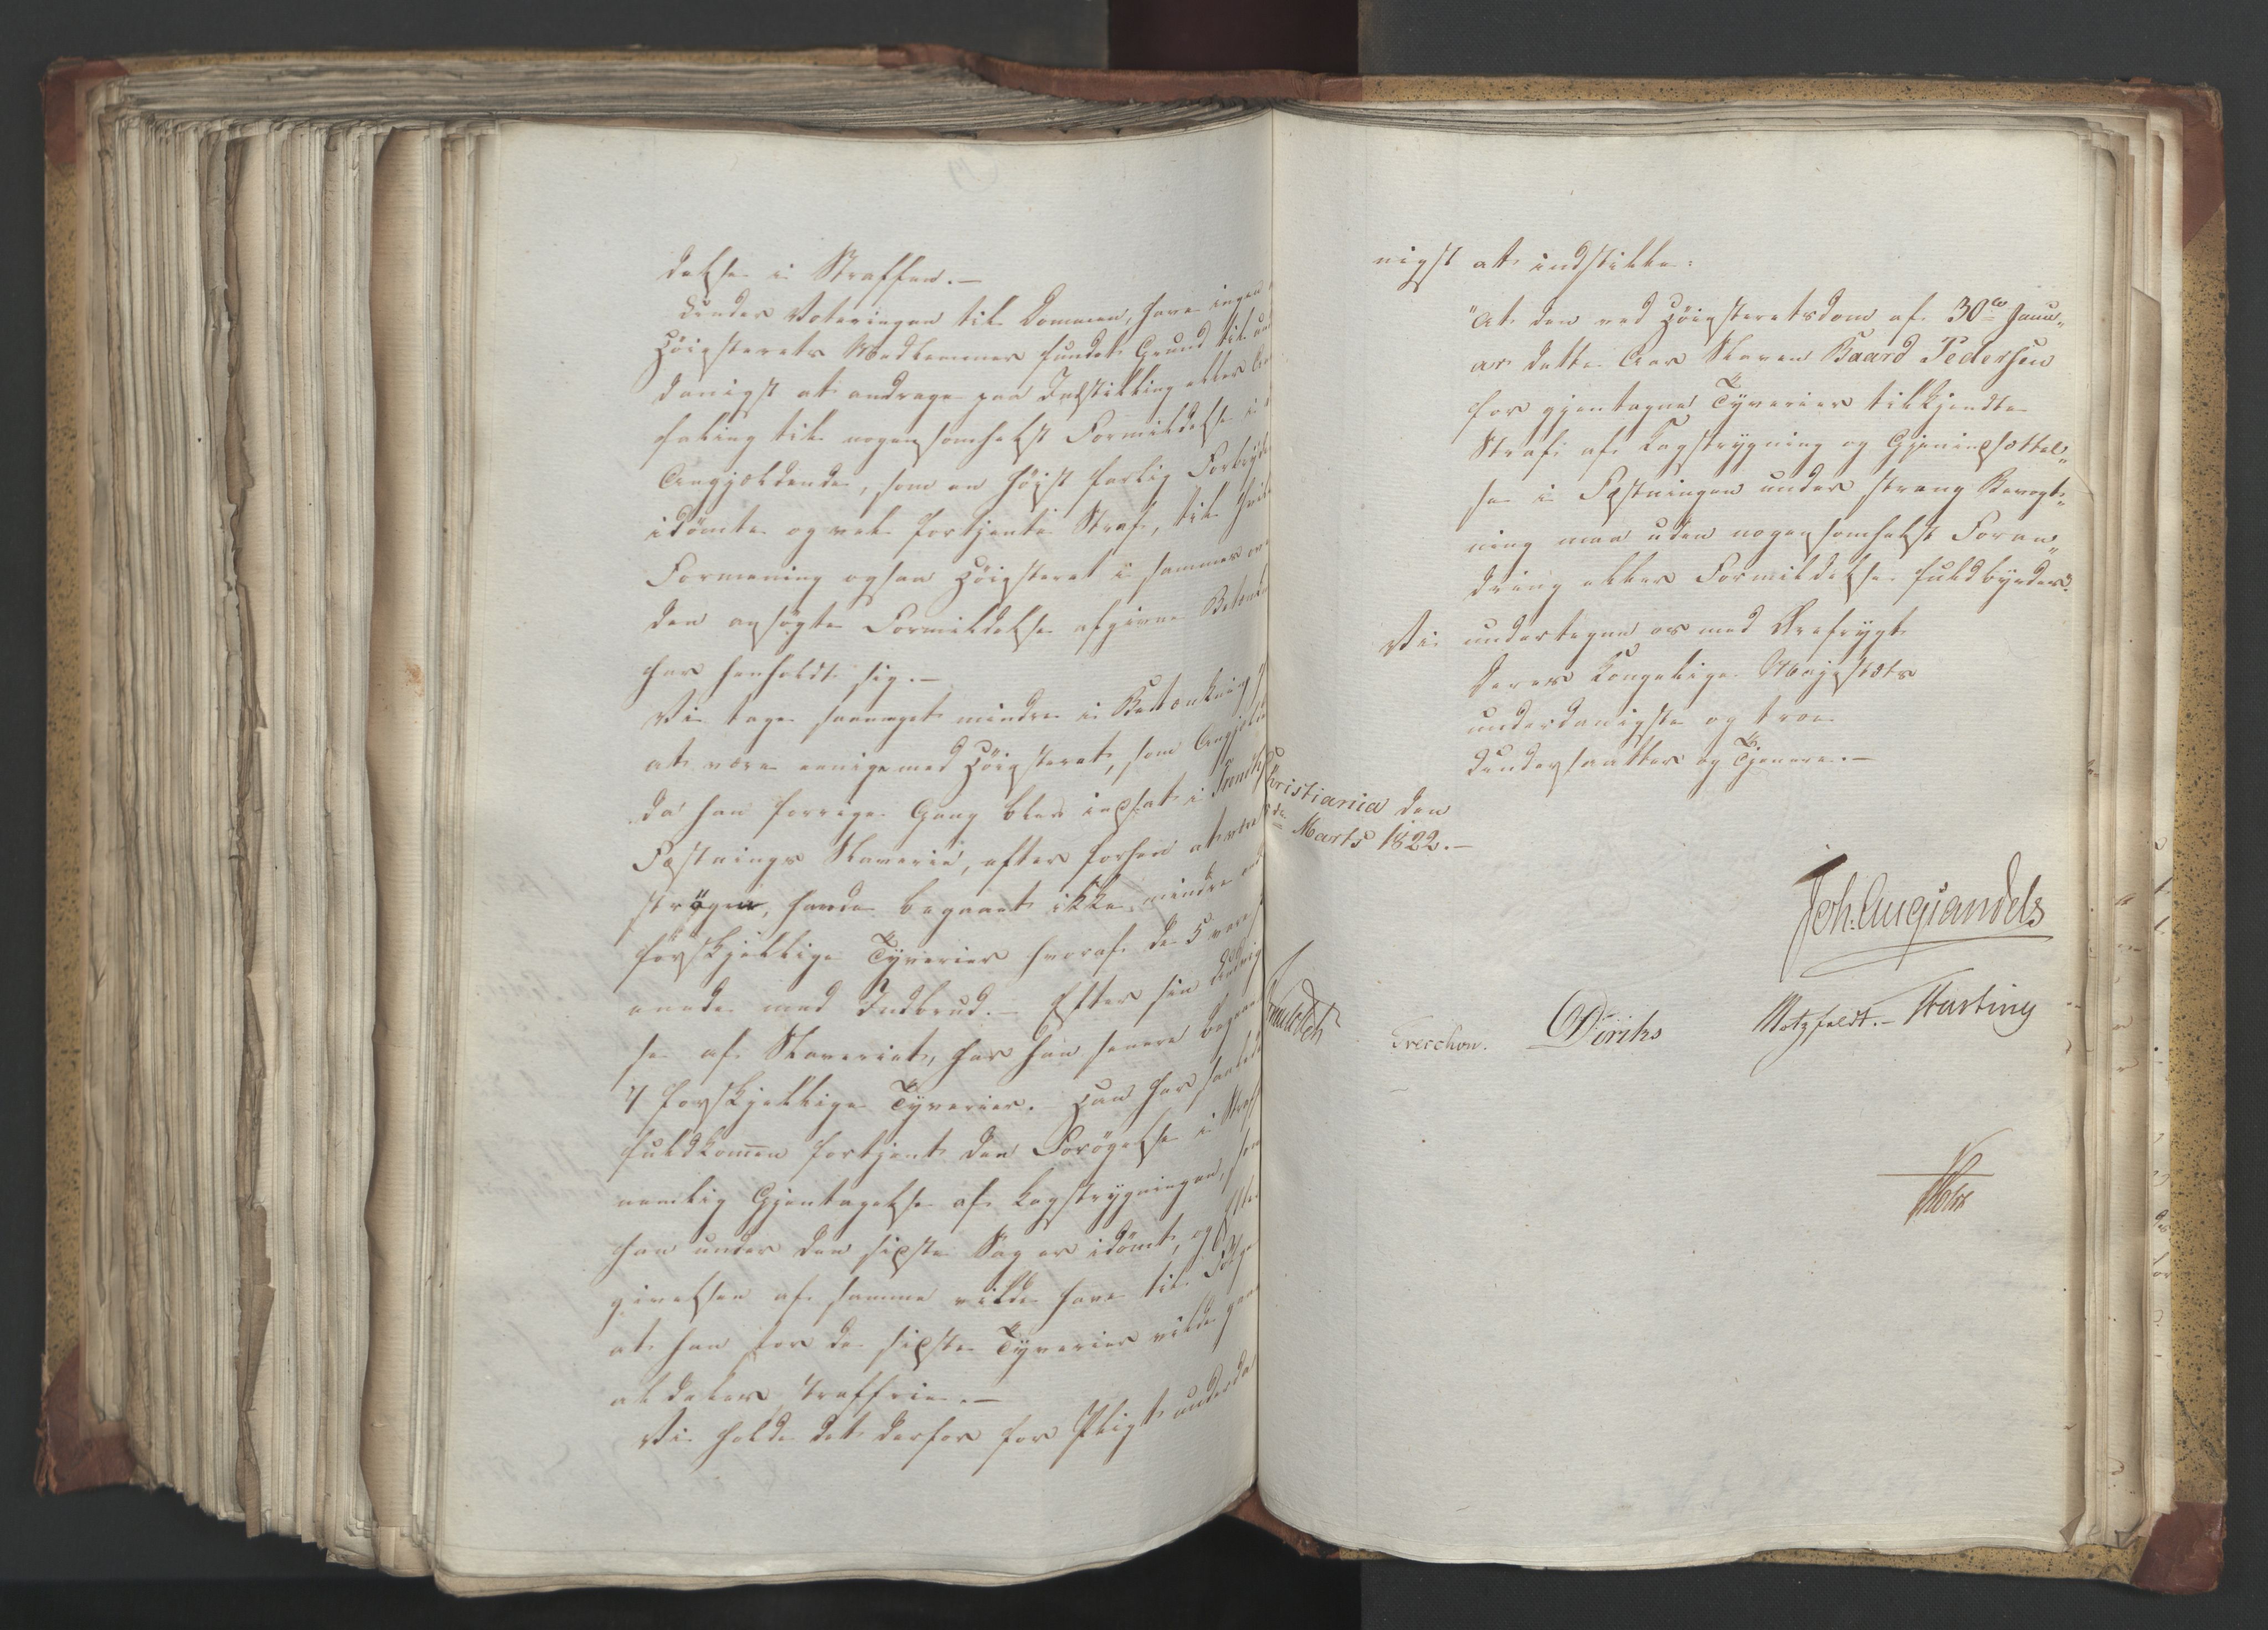 delse i Straffen.—
Under Voteringen til Dommen, have ingen
Höiesterets Medlemmer fundet Grund til un
danigst at andrage paa Indstilling eller An
faling til nogensomhelst Formildelse i
Angjældende, som en höist farlig Forbryde
idömte og vel fortjente Straf, til hvil
Formening ogsaa Höiesteret i sammes ov
den ansögte Formildelse afgivne Betænk
har henholdt sig.—
Vi tage saameget mindre i Betænkning
at være eenige med Höiesteret, som Angjeld
da han forrige Gang blev indsat i Trondh
Fæstnings Slaverie, efter forhen at være
strögen, havde begaaet ikke mindre end
forskjellige Tyverier hvoraf de 5 vare
øvede med Indbrud.— Efter sin Undvig
se af Slaveriet, har han senere begaaet
7 forskjellige Tyverier. Han har saaledes
fuldkom̅en fortjent den Forögelse i Straf
nemlig Gjentagelse af Kagstrygningen, som
han under den sidste Sag er idömt, og Efter
givelsen af samme vilde have til Fölge
at han for de sidste Tyverier vilde gaae
aldeles straffrie.—
Vi holde det derfor for Pligt underda
nigst at indstille:
"At den ved Höiesteretsdom af 30te Janu„
ar dette Aar Slaven Baard Pedersen
for gjentagne Tyverier tilkjendte
Straf af Kagstrygning og Gjenindsættel„
se i Fæstningen under streng Bevogt„
ning maa uden nogensomhelst Foran„
dring eller Formildelse fuldbyrdes."
Vi undertegne os med Ærefrygt
Deres Kongelige Majestæts
underdanigste og troe
Undersaatter og Tjenere.—
Christiania den
de Marts 1822.—
Joh. Aug. Sandels
Treschow. Diriks Motzfeldt.— Fasting
Holst